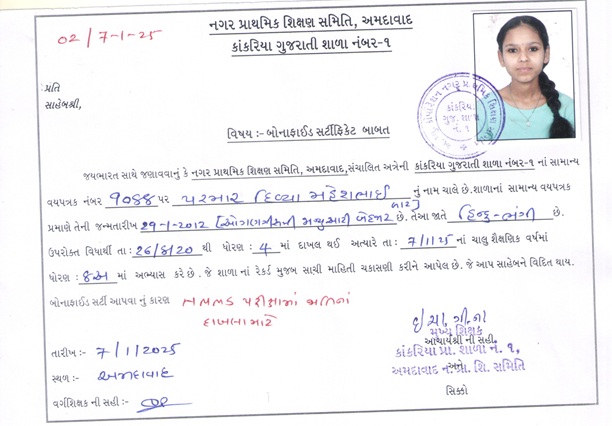 ૦2 / 7-1-25
નગર પ્રાથમિક શિક્ષણ સમિતિ, અમદાવાદ
કાંકરિયા ગુજરાતી શાળા નંબર-૧
પ્રતિ
સાહેબશ્રી,
કાંકરિયા
ગુજ. શાળા
નં. ૧
વિષય :- બોનાફાઈડ સર્ટીફિકેટ બાબત
જયભારત સાથે જણાવવાનું કે નગર પ્રાથમિક શિક્ષણ સમિતિ, અમદાવાદ,સંચાલિત અત્રેની કાંકરિયા ગુજરાતી શાળા નંબર-૧ નાં સામાન્ય
વયપત્રક નંબર ૧૦૪૪ પર પરમાર દિવ્યા મહેશભાઈ નું નામ ચાલે છે.શાળાનાં સામાન્ય વયપત્રક
પ્રમાણે તેની જન્મતારીખ 29-1-2012 છે. તેઆ જાતે હિન્દુ-ભંગી છે.
ઉપરોક્ત વિધાર્થી તા : 26/8/20 થી ધોરણ : 4 માં દાખલ થઈ અત્યારે તા : 7/1/25 નાં ચાલુ શૈક્ષણિક વર્ષમાં
ધોરણ : 8અ માં અભ્યાસ કરે છે . જે શાળા નાં રેકર્ડ મુજબ સાચી માહિતી ચકાસણી કરીને આપેલ છે . જે આપ સાહેબને વિદિત થાય.
બોનાફાઈડ સર્ટી આપવા નું કારણ NMMS પરીક્ષામાં
દાખલા માટે
મુખ્ય શિક્ષક
આચાર્યશ્રી ની સહી.
તારીખ :- 7/1/2025
કાંકરિયા પ્રા. શાળા નં. ૧,
સ્થળ :- અમદાવાદ
અમદાવાદ ન. પ્રા. શિ. સમિતિ
અને
વર્ગશિક્ષક ની સહી :-
સિક્કો